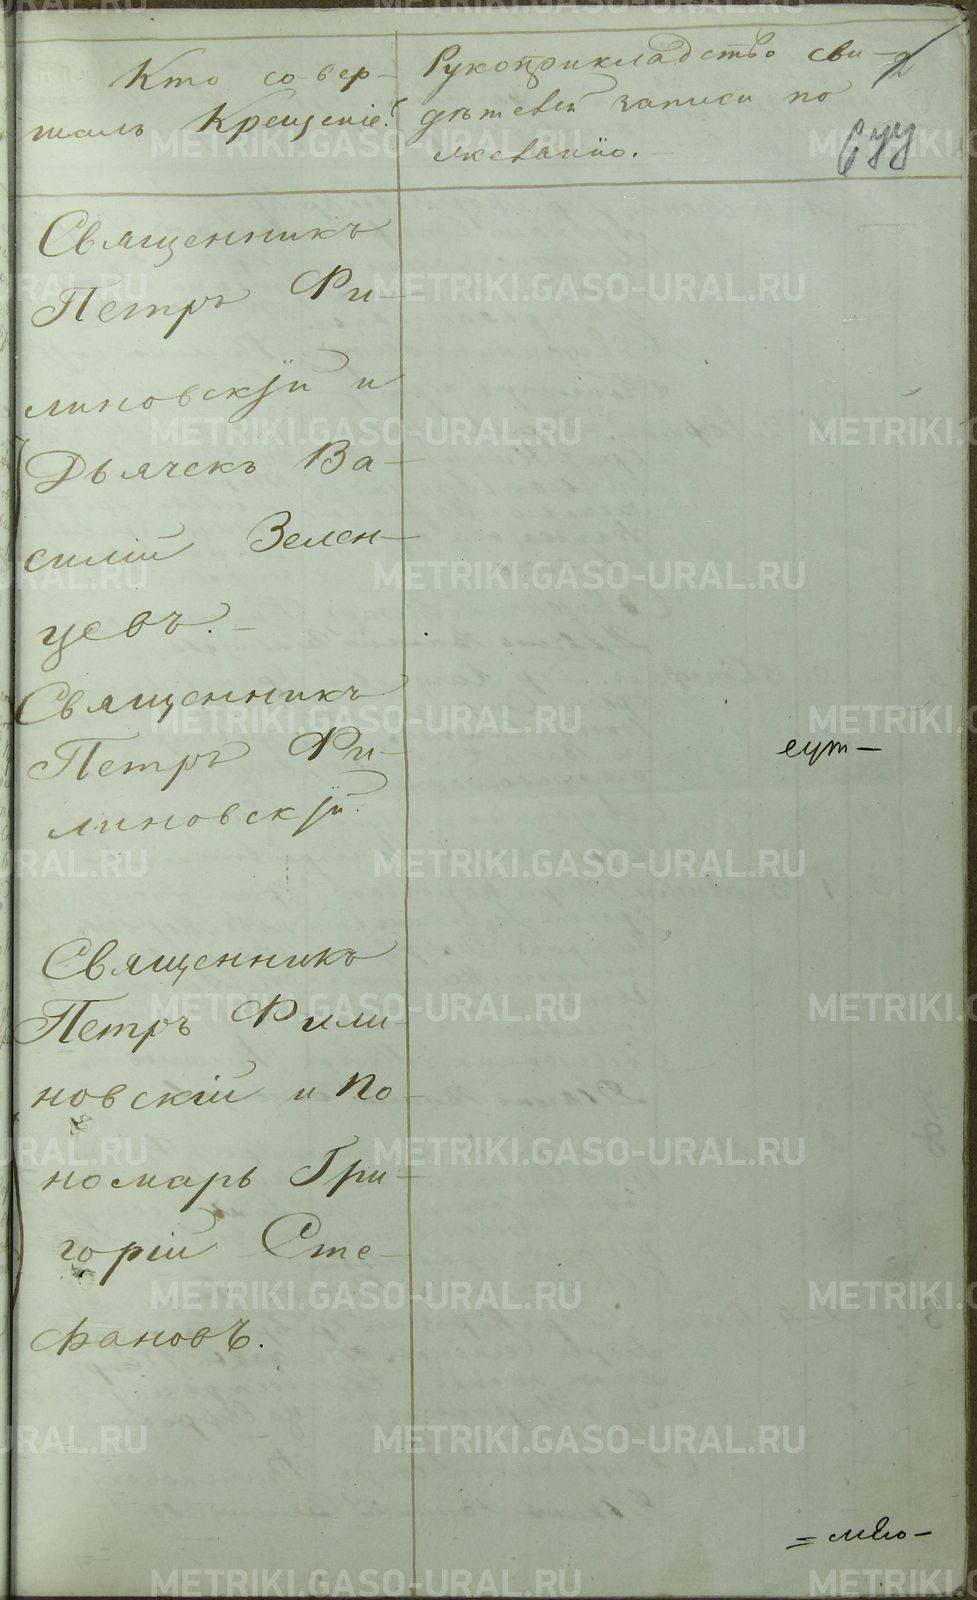 Кто совер-
шалъ Крещеніе?
Рукоприкладство сви-
дѣтелей записи по
желанію.
Священникъ
Петръ Фи-
линовскій и
Дьячекъ Ва-
силій Зелен-
цевъ.
Священникъ
Петръ Фи-
линовскій.
еут-
Священникъ
Петръ Фили-
новскій и По-
номарь Гри-
горій Сте-
фановъ.
METRIKI.GASO-URAL.RU